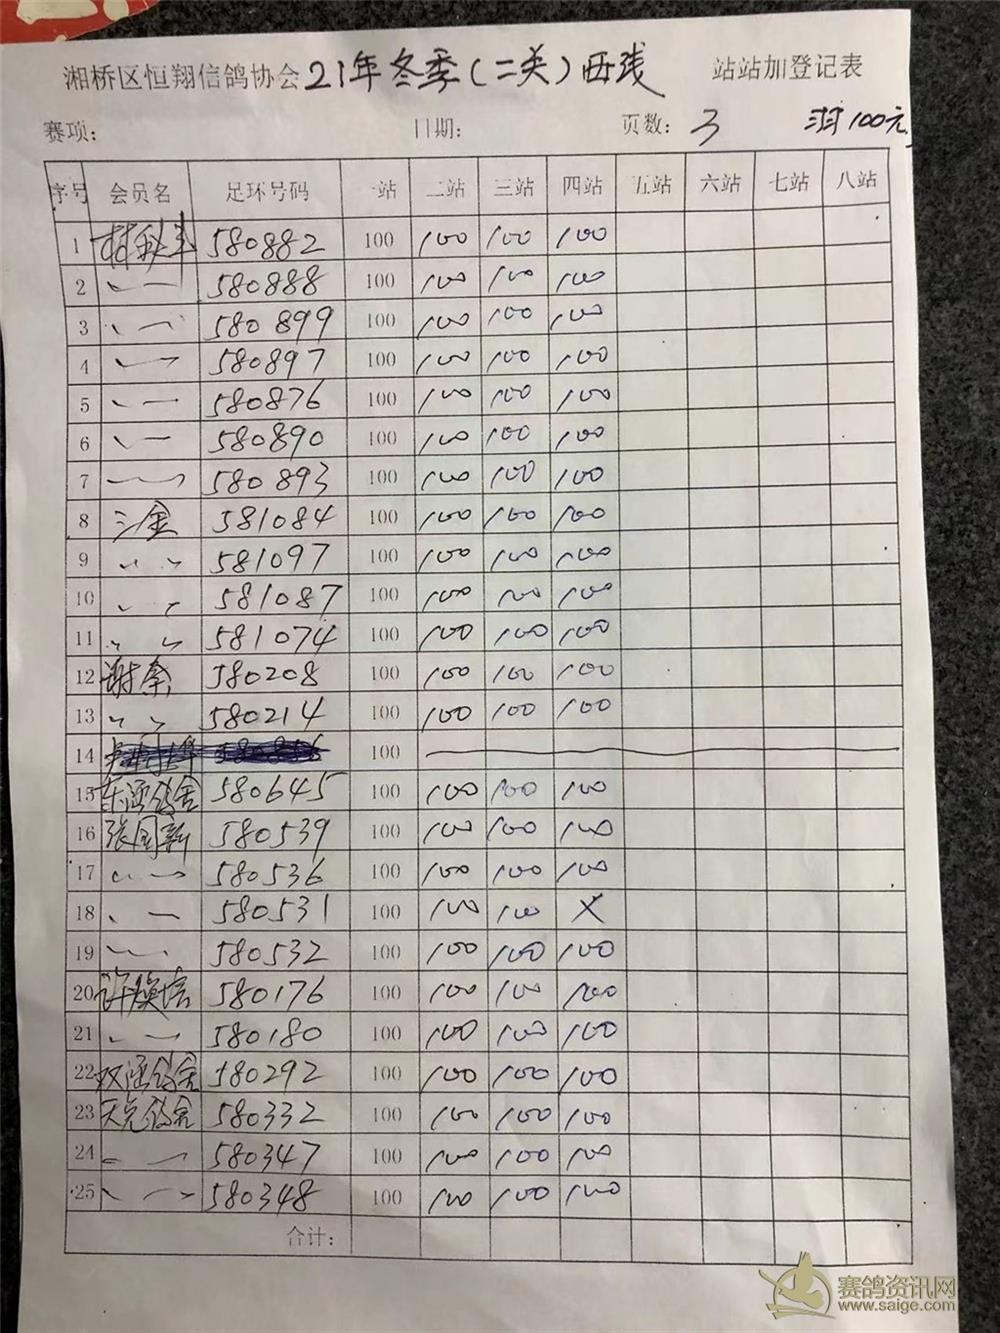 湘桥区恒翔信鸽协会 21年冬季(二关)西线 站站加登记表
赛项: 日期: 页数: 3 羽100元
序号 会员名 足环号码 一站 二站 三站 四站 五站 六站 七站 八站
1 580882 100 100 100 100
2 580888 100 100 100 100
3 580899 100 100 100 100
4 580897 100 100 100 100
5 580876 100 100 100 100
6 580890 100 100 100 100
7 580893 100 100 100 100
8 三金 581084 100 100 100 100
9 〃 581097 100 100 100 100
10 〃 581087 100 100 100 100
11 〃 581074 100 100 100 100
12 580208 100 100 100 100
13 〃 580214 100 100 100 100
14 100
15 东涵鸽舍 580645 100 100 100 100
16 张国新 580539 100 100 100 100
17 580536 100 100 100 100
18 580531 100 100 100 X
19 580532 100 100 100 100
20 许焕培 580176 100 100 100 100
21 580180 100 100 100 100
22 双涵鸽舍 580292 100 100 100 100
23 天元鸽舍 580332 100 100 100 100
24 580347 100 100 100 100
25 580348 100 100 100 100
合计:
赛鸽资讯网
www.saige.com